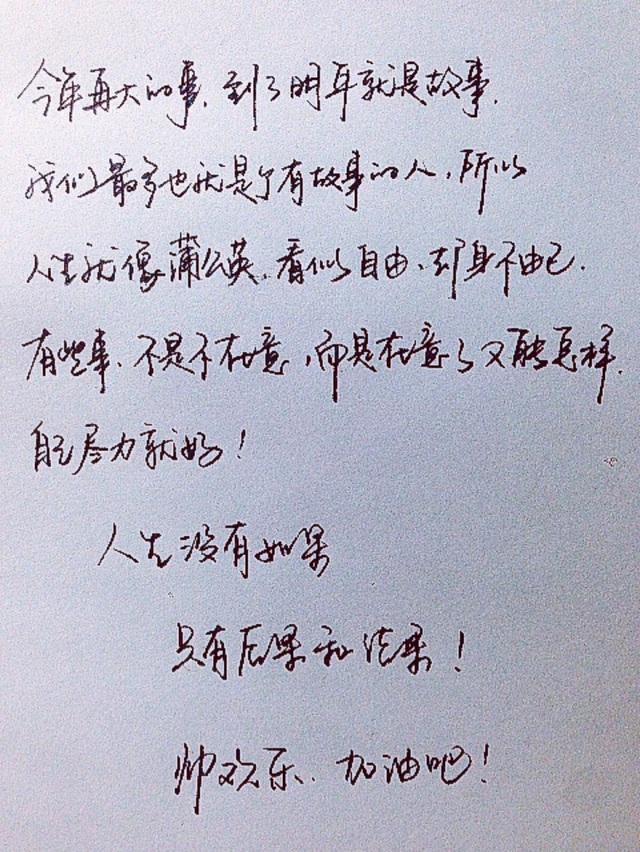 今年再大的事、到了明年就是故事、
我们最多也就是个有故事的人，所以
人生就像蒲公英、看似自由、却身不由己.
有些事、不是不在意，而是在意了又能怎样.
自己尽力就好！
人生没有如果
只有后果和结果！
帅欢乐、加油吧！